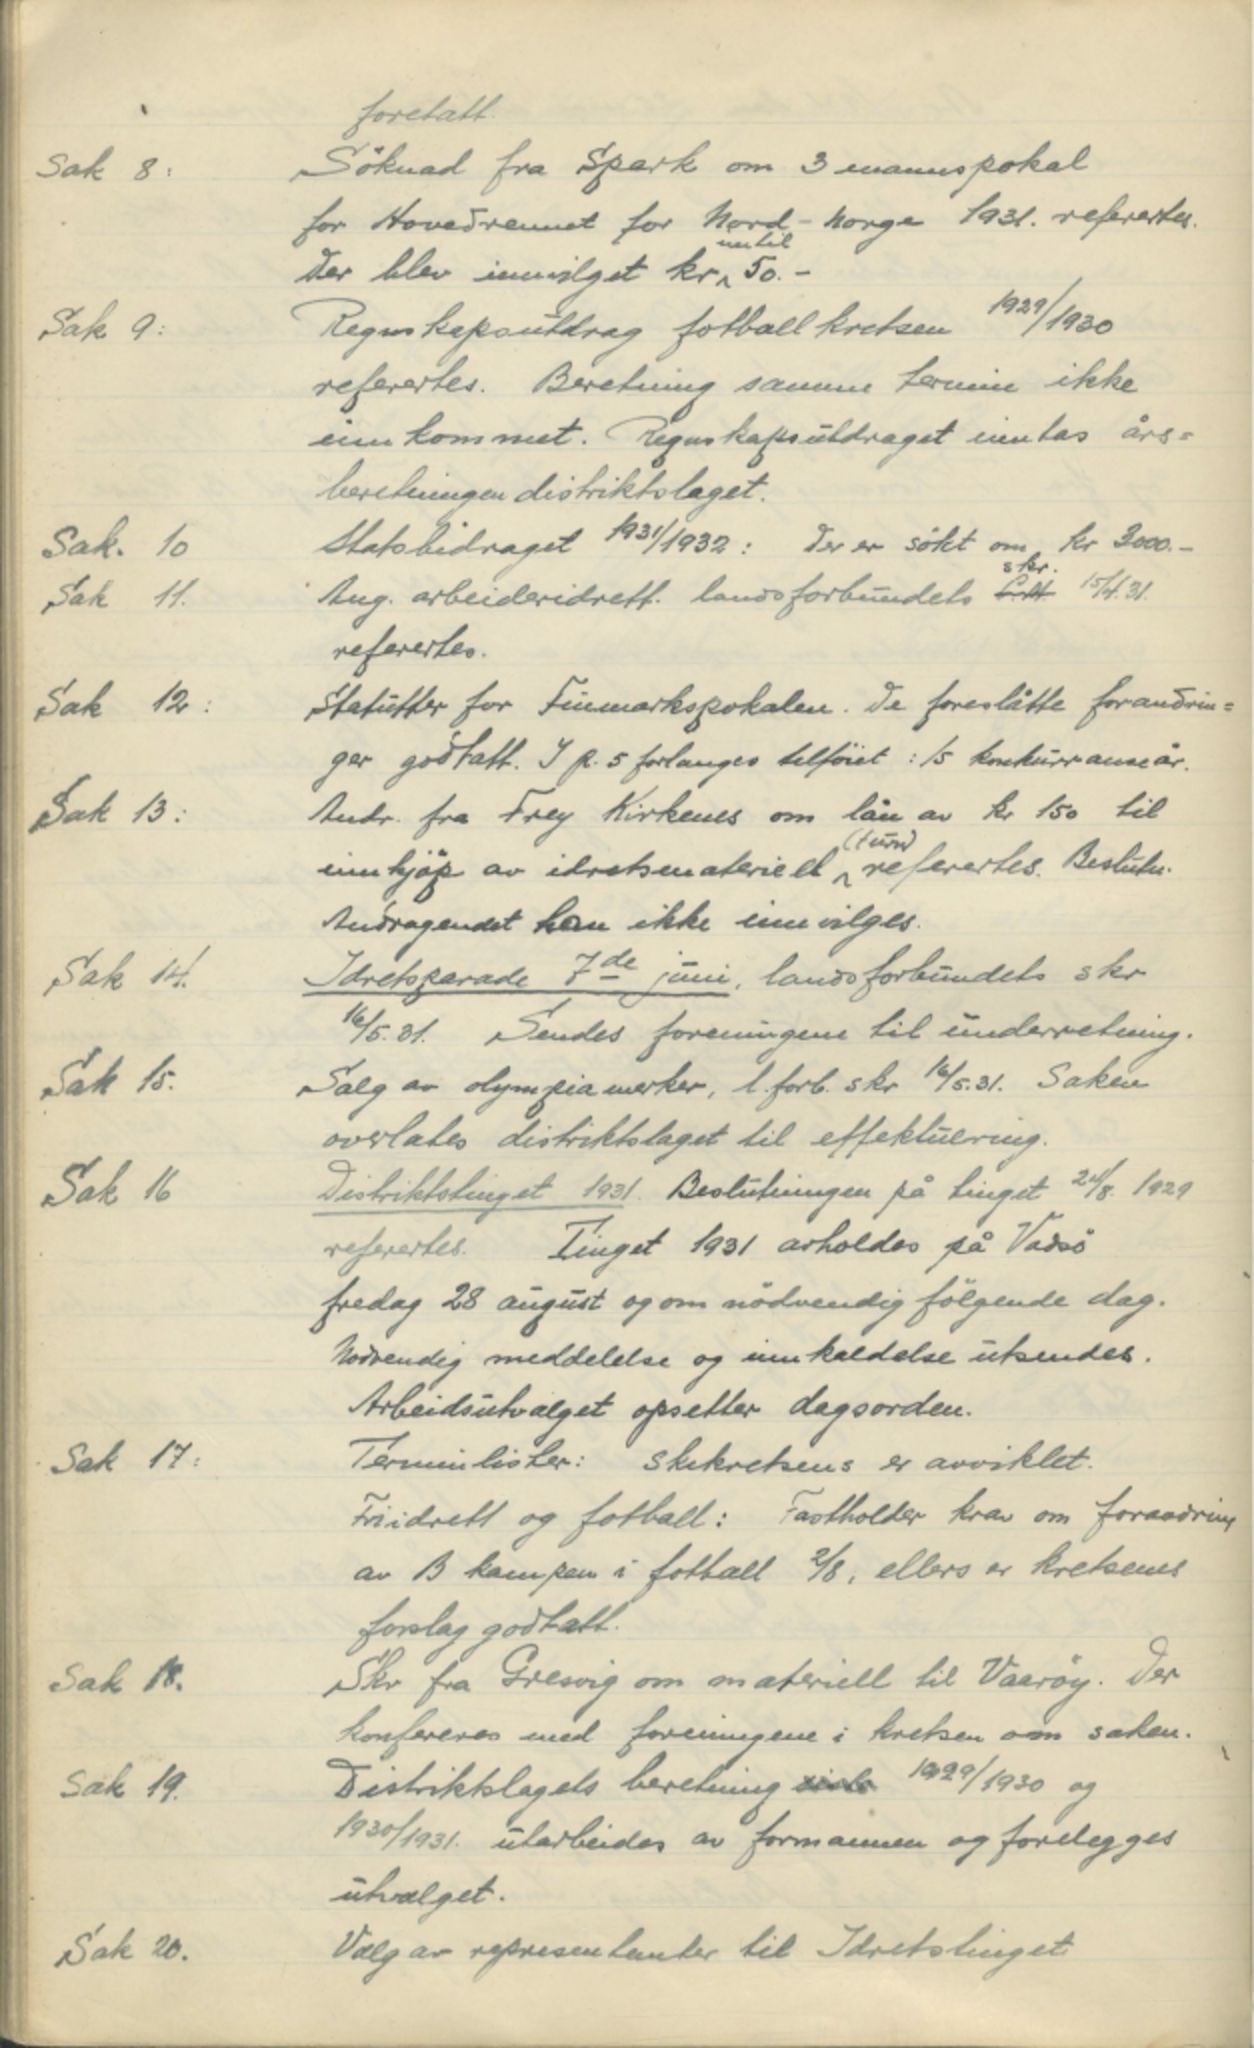 foretatt.
Sak 8: Söknad fra Spark om 3 mannspokal
for Hovedrennet for Nord-Norge 1931. refertes.
Der blev innvilget kr. inntil 50.-
Sak 9: Regnskapsutdrag fotballkretsen 1929/1930
refertes. Beretning samme termin ikke
innkommet. Regnskapsutdraget inntas års=
beretningen distriktslaget.
Sak. 10 Statsbidraget 1931/1932: Der er sökt om kr 3000.-
Sak 11. Ang. arbeideridrett. landsforbundets skr. 15/4.31.
refertes.
Sak 12: Statutter for Finmarkspokalen. De foreslåtte forandrin=
ger godtatt. I p. 5 forlanges tilföiet: 15 konkurranseår.
Sak 13: Andr. fra Frey Kirkenes om lån av kr 150 til
innkjöp av idretsmateriell (turn) refertes. Beslutn.
Andragendet kan ikke innvilges.
Sak 14. Idretsparade 7de juni, landsforbundets skr
16/5.31. Sendes foreningene til underretning.
Sak 15. Salg av olympiamerker, l.forb. skr 16/5.31. Saken
overlates distriktslaget til effektuering.
Sak 16 Distriktstinget 1931. Beslutningen på tinget 24/8. 1929
refertes. Tinget 1931 avholdes på Vadsö
fredag 28 august og om nödvendig fölgende dag.
Nödvendig meddelelse og innkaldelse utsendes.
Arbeidsutvalget opsetter dagsorden.
Sak 17: Terminlister: Skikretsens er avviklet.
Friidrett og fotball: Fastholder krav om forandring
av B kampen i fotball 2/8, ellers er kretsenes
forslag godtatt.
Sak 18. Skr fra Gresvig om materiell til Vaeröy. Der
konfereres med foreningene i kretsen om saken.
Sak 19. Distriktslagets beretning 1929/1930 og
1930/1931. utarbeides av formannen og forelegges
utvalget.
Sak 20. Valg av representanter til Idretstinget